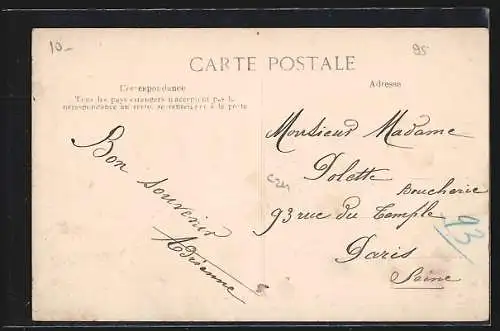 10-
95
CARTE POSTALE
Correspondance
Tous les pays étrangers n'acceptent pas la
correspondance au recto, se renseigner à la poste
Adresse
Bon souvenir
Adrienne
Monsieur Madame
Dolette
Boucherie
93 rue du Temple
Paris
Seine
93